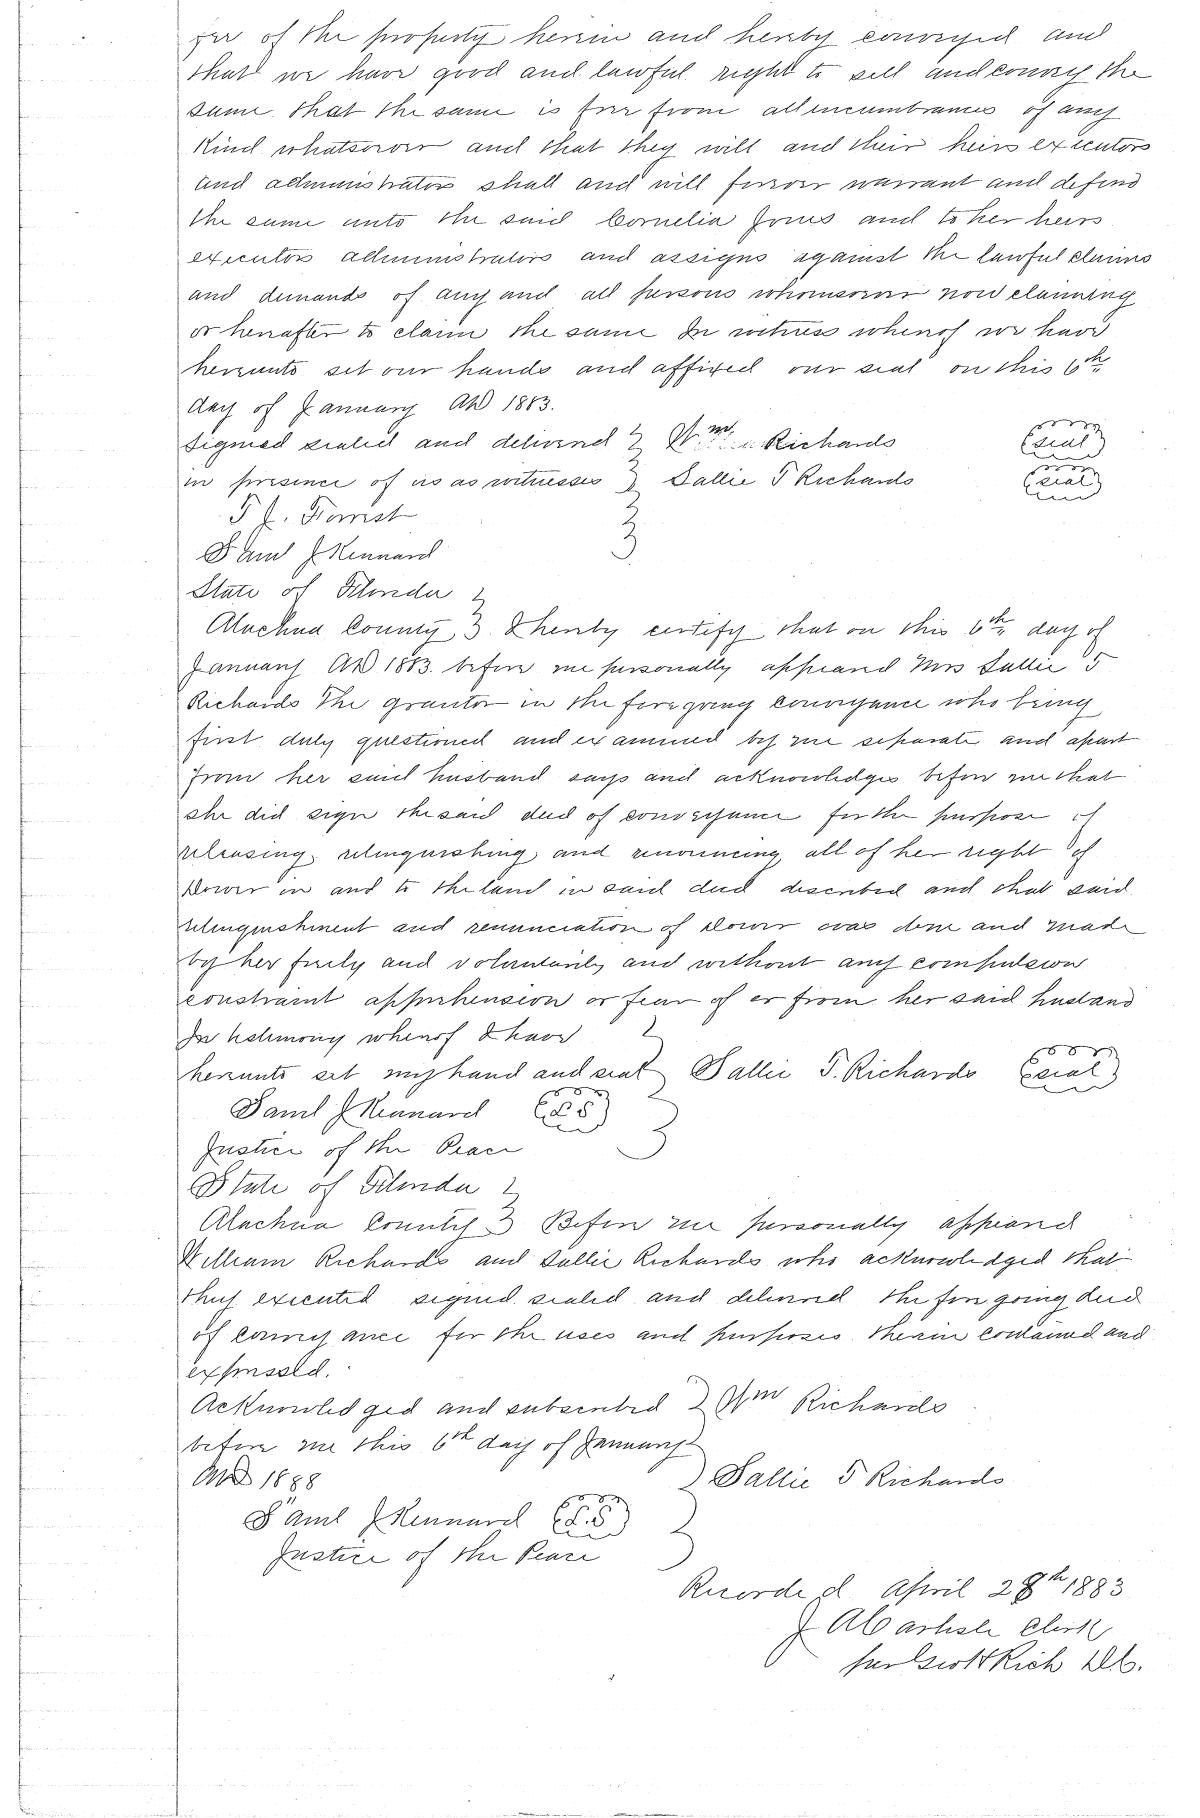 fee of the property herein and hereby conveyed and
that we have good and lawful right to sell and convey the
same that the same is free from all incumbrances of any
Kind whatsoever and that they will and their heirs executors
and administrators shall and will forever warrant and defend
the same unto the said Cornelia Jones and to her heirs
executors administrators and assigns against the lawful claims
and demands of any and all persons whomsoever now claiming
or hereafter to claim the same In witness whereof we have
hereunto set our hands and affixed our seal on this 6th
day of January AD 1883.
Signed sealed and delivered } Wm Richards (seal)
in presence of us as witnesses } Sallie T Richards (seal)
T J. Forrest
Saml J Kennard
State of Florida }
Alachua County } I hereby certify that on this 6th day of
January AD 1883. before me personally appeared Mrs Sallie T
Richards the grantor in the foregoing conveyance who being
first duly questioned and examined by me separate and apart
from her said husband says and acknowledges before me that
she did sign the said deed of conveyance for the purpose of
releasing, relinquishing and renouncing all of her right of
Dower in and to the land in said deed described and that said
relinquishment and renunciation of dower was done and made
by her freely and voluntarily and without any compulsion
constraint apprehension or fear of or from her said husband
In testimony whereof I have }
hereunto set my hand and seal } Sallie T. Richards (seal)
Saml J Kennard (L.S)
Justice of the Peace
State of Florida }
Alachua County } Before me personally appeared
William Richards and Sallie Richards who acknowledged that
they executed signed sealed and delivered the fore going deed
of conveyance for the uses and purposes therein contained and
expressed.
Acknowledged and subscribed } Wm Richards
before me this 6th day of January
AD 1888 ) Sallie T Richards
Saml J Kennard (L.S)
Justice of the Peace
Recorded April 28th 1883
J A Carlisle Clerk
per Scott Rich DC.